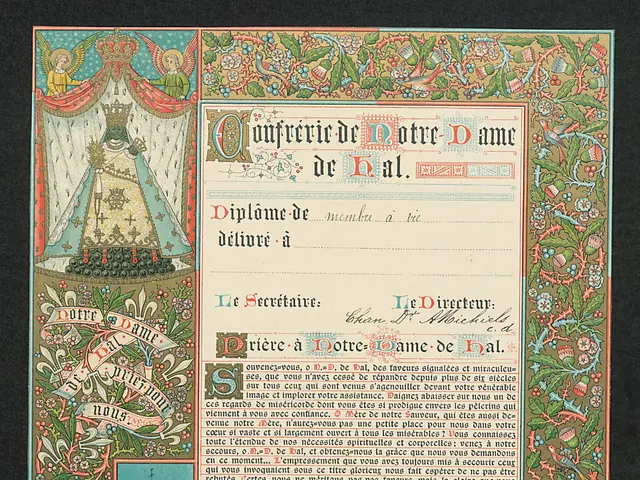 Confrérie de Notre-Dame
de Hal.
Diplôme de membre à vie
délivré à
Le Secrétaire:
Le Directeur:
Chan. Dr. A Michiels
c.d.
Prière à Notre-Dame de Hal.
Notre Dame
de Hal
priez pour
nous.
Souvenez-vous, o N.-D. de Hal, des faveurs signalées et miraculeu-
ses, que vous n'avez cessé de répandre depuis plus de six siècles
sur tous ceux qui sont venus s'agenouiller devant votre vénérable
image et implorer votre assistance. Daignez abaisser sur nous un de
ces regards de miséricorde dont vous êtes si prodigue envers les pèlerins qui
viennent à vous avec confiance. O Mère de notre Sauveur, qui êtes aussi de-
venue notre Mère, n'aurez-vous pas une petite place pour nous dans votre
cœur si vaste et si largement ouvert à tous les misérables? Vous connaissez
toute l'étendue de nos nécessités spirituelles et corporelles: venez à notre
secours, o N.-D. de Hal, et obtenez-nous la grâce que nous vous demandons
en ce moment... L'empressement que vous avez toujours mis à secourir ceux
qui vous invoquaient sous ce titre glorieux nous fait espérer de ne pas être
rebutés. Certes, nous ne méritons pas nos faveurs, mais la gloire que nous